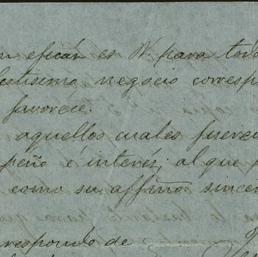 eficáz es V. para tod
negocio corresp
favorece.
aquellos cuales fueren
peño e interés; al que
como su affmo. sincer
respondo de